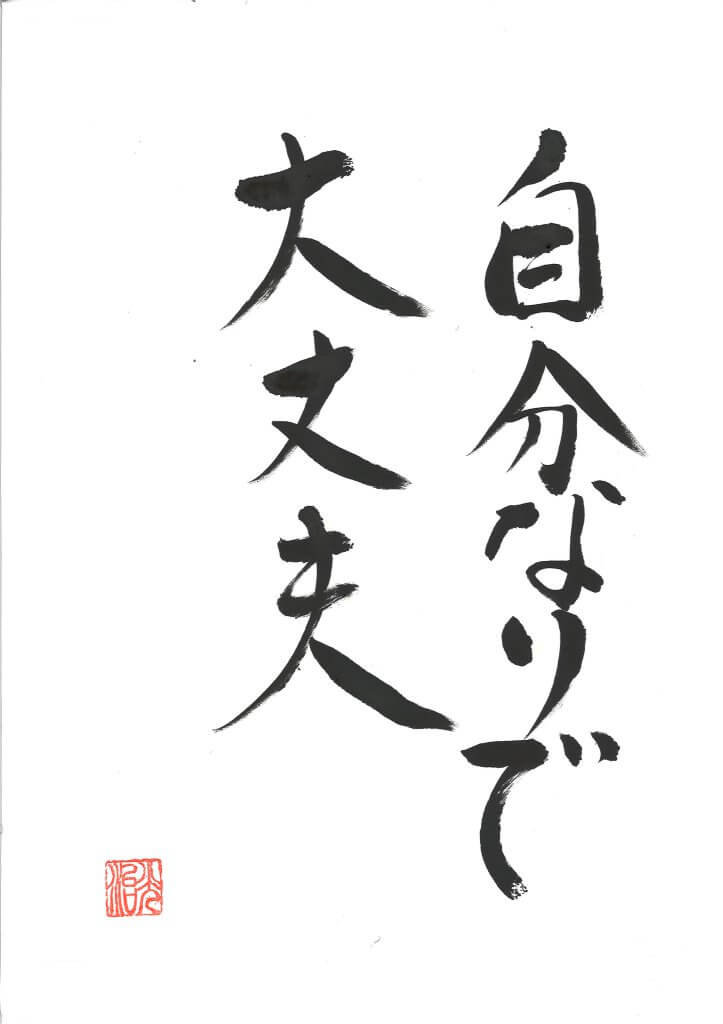 自分なりで
大丈夫